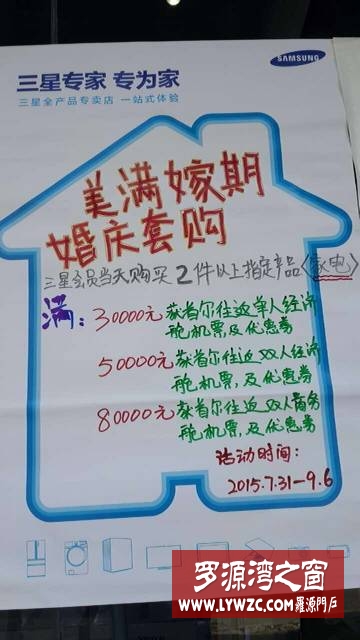 SAMSUNG
三星专家 专为家
三星全产品专卖店 一站式体验
美满嫁期
婚庆套购
三星会员当天购买2件以上指定产品<家电>
满:30000元获首尔往返单人经济
舱机票及优惠券
50000元获首尔往返双人经济
舱机票,及优惠券
80000元获首尔往返双人商务
舱机票,及优惠券
活动时间:
2015.7.31-9.6
罗源湾之窗
www.LYWZC.com 羅源門户